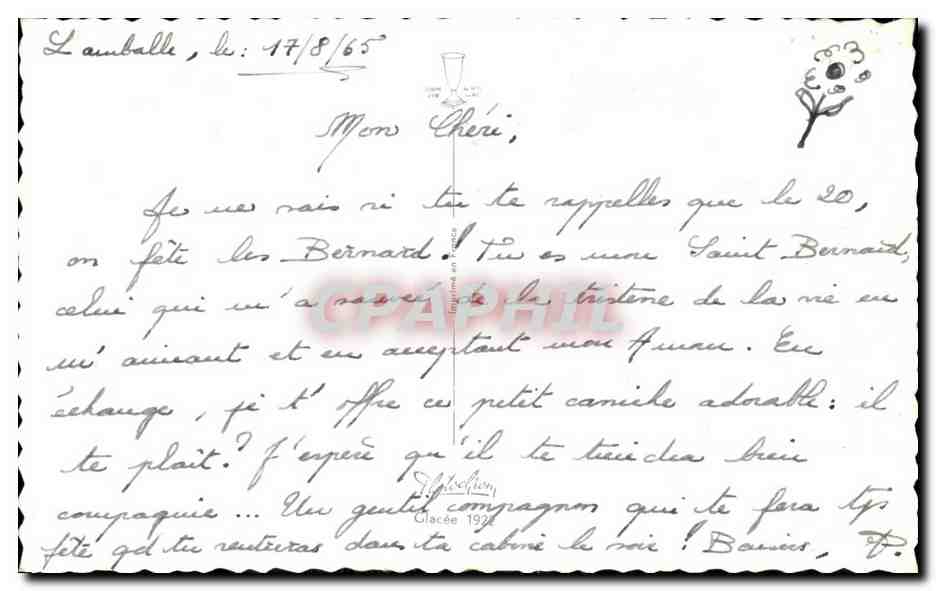 Lamballe, le : 17/8/65
Mon Chéri,
Je ne sais si tu te rappelles que le 20,
on fête les Bernard ! Tu es mon Saint Bernard,
celui qui m'a sauvée de la tristesse de la vie en
m'aimant et en acceptant mon Amour. En
échange, je t'offre ce petit caniche adorable : il
te plaît ? J'espère qu'il te tiendra bien
compagnie ... Un gentil compagnon qui te fera tjs
fête qd tu rentreras dans ta cabine le soir ! Baisers, P.
Imprimé en France
CPAPHIL
Glacée 1922